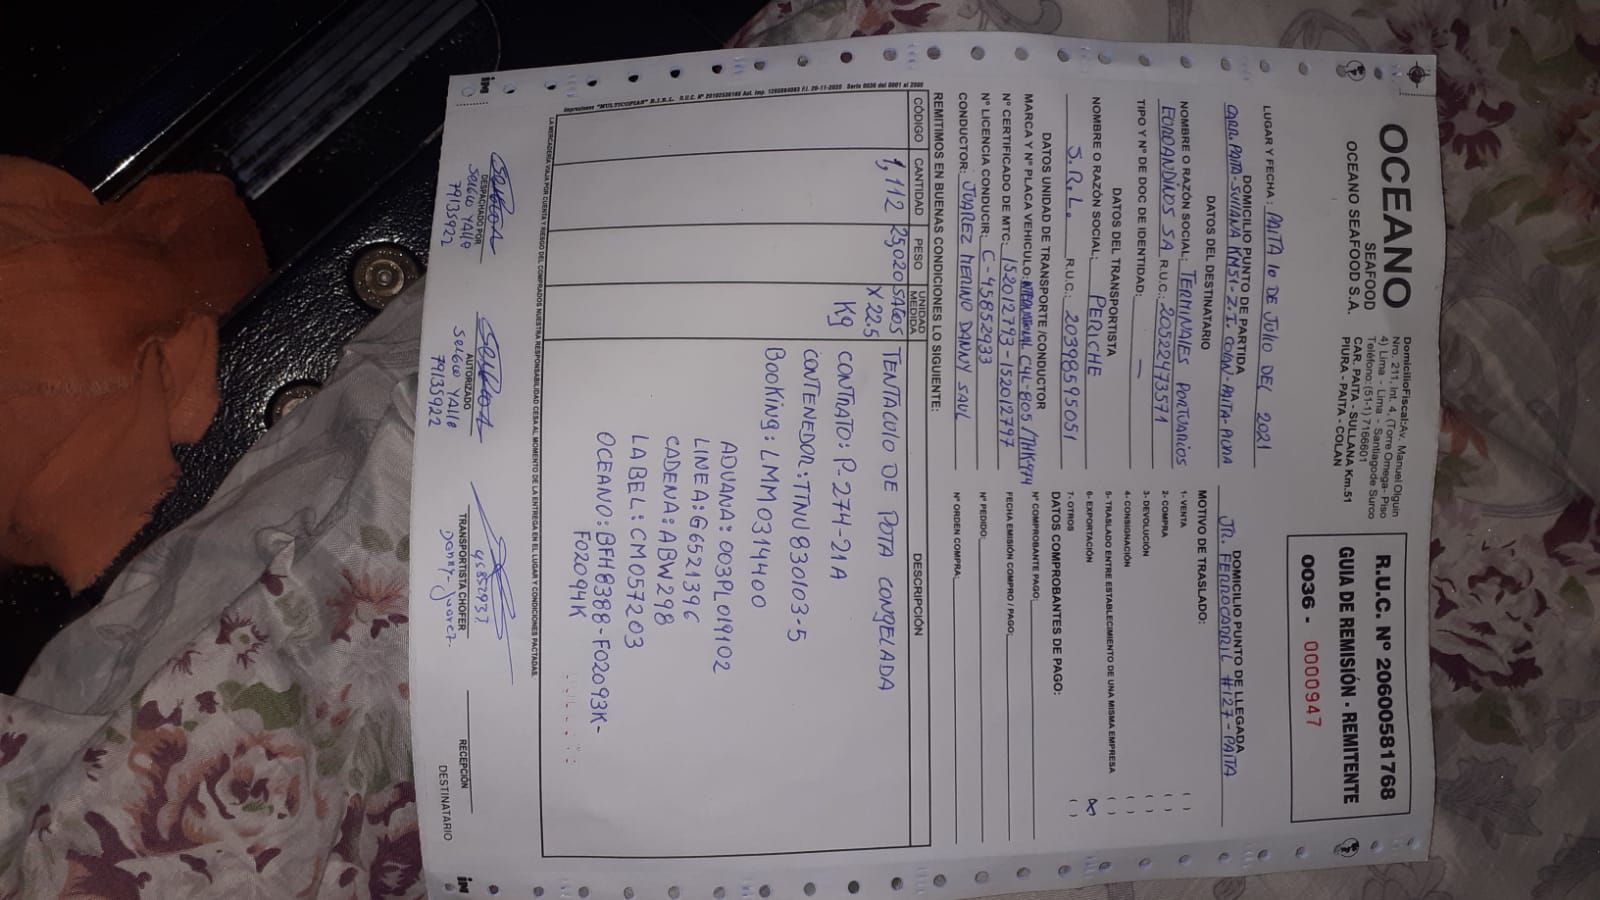 OCEANO
SEAFOOD
OCEANO SEAFOOD S.A.
Domicilio Fiscal: Av. Manuel Olguin
Nro. 211, Int. 4, (Torre Omega- Piso
4) Lima - Lima - Santiago de Surco
Teléfono: (51-1) 7166601
CAR. PAITA - SULLANA Km.51
PIURA - PAITA - COLAN
R.U.C. Nº 20600581768
GUIA DE REMISIÓN - REMITENTE
0036 - 0000947
LUGAR Y FECHA: PAITA 10 DE JULIO DEL 2021
DOMICILIO PUNTO DE PARTIDA
CARR. PAITA-SULLANA KM51-Z.I. COLAN-PAITA-PIURA
DOMICILIO PUNTO DE LLEGADA
JR. FERROCARRIL #127-PAITA
DATOS DEL DESTINATARIO
NOMBRE O RAZÓN SOCIAL: TERMINALES PORTUARIOS
EUROANDINOS SA R.U.C.: 20522473571
TIPO Y Nº DE DOC DE IDENTIDAD: —
DATOS DEL TRANSPORTISTA
NOMBRE O RAZÓN SOCIAL: PERICHE
S.R.L. R.U.C.: 20398595051
DATOS UNIDAD DE TRANSPORTE /CONDUCTOR
MARCA Y Nº PLACA VEHICULO: C4L-805
Nº CERTIFICADO DE MTC: 152012793-152012797
Nº LICENCIA CONDUCIR: C-45852933
CONDUCTOR: JUAREZ MERINO DANNY SAUL
MOTIVO DE TRASLADO:
1- VENTA ( )
2- COMPRA ( )
3- DEVOLUCIÓN ( )
4- CONSIGNACIÓN ( )
5- TRASLADO ENTRE ESTABLECIMIENTO DE UNA MISMA EMPRESA ( )
6- EXPORTACIÓN (X)
7- OTROS ( )
DATOS COMPROBANTES DE PAGO:
Nº COMPROBANTE PAGO:
FECHA EMISIÓN COMPRO / PAGO:
Nº PEDIDO:
Nº ORDEN COMPRA:
REMITIMOS EN BUENAS CONDICIONES LO SIGUIENTE:
CÓDIGO CANTIDAD PESO UNIDAD MEDIDA DESCRIPCIÓN
1,112 25,020 SACOS TENTACULO DE POTA CONGELADA
X 22.5
Kg CONTRATO: P-274-21A
CONTENEDOR: TTNU 830103-5
BOOKING: LMM0314400
ADUANA: 003PL019102
LINEA: G6521396
CADENA: ABW298
LABEL: CM057203
OCEANO: BFH8388-F02093K-
F02094K
Impresiones "MULTICOPIAS" E.I.R.L. Serie 0036 del 0001 al 2000
LA MERCADERÍA VIAJA POR CUENTA Y RIESGO DEL COMPRADOS NUESTRA RESPONSABILIDAD CESA AL MOMENTO DE LA ENTREGA EN EL LUGAR Y CONDICIONES PACTADAS.
DESPACHADO POR
Sergio Yalle
79135922
AUTORIZADO
Sergio Yalle
79135922
45852933
TRANSPORTISTA CHOFER
Danny Juarez
RECEPCIÓN
DESTINATARIO